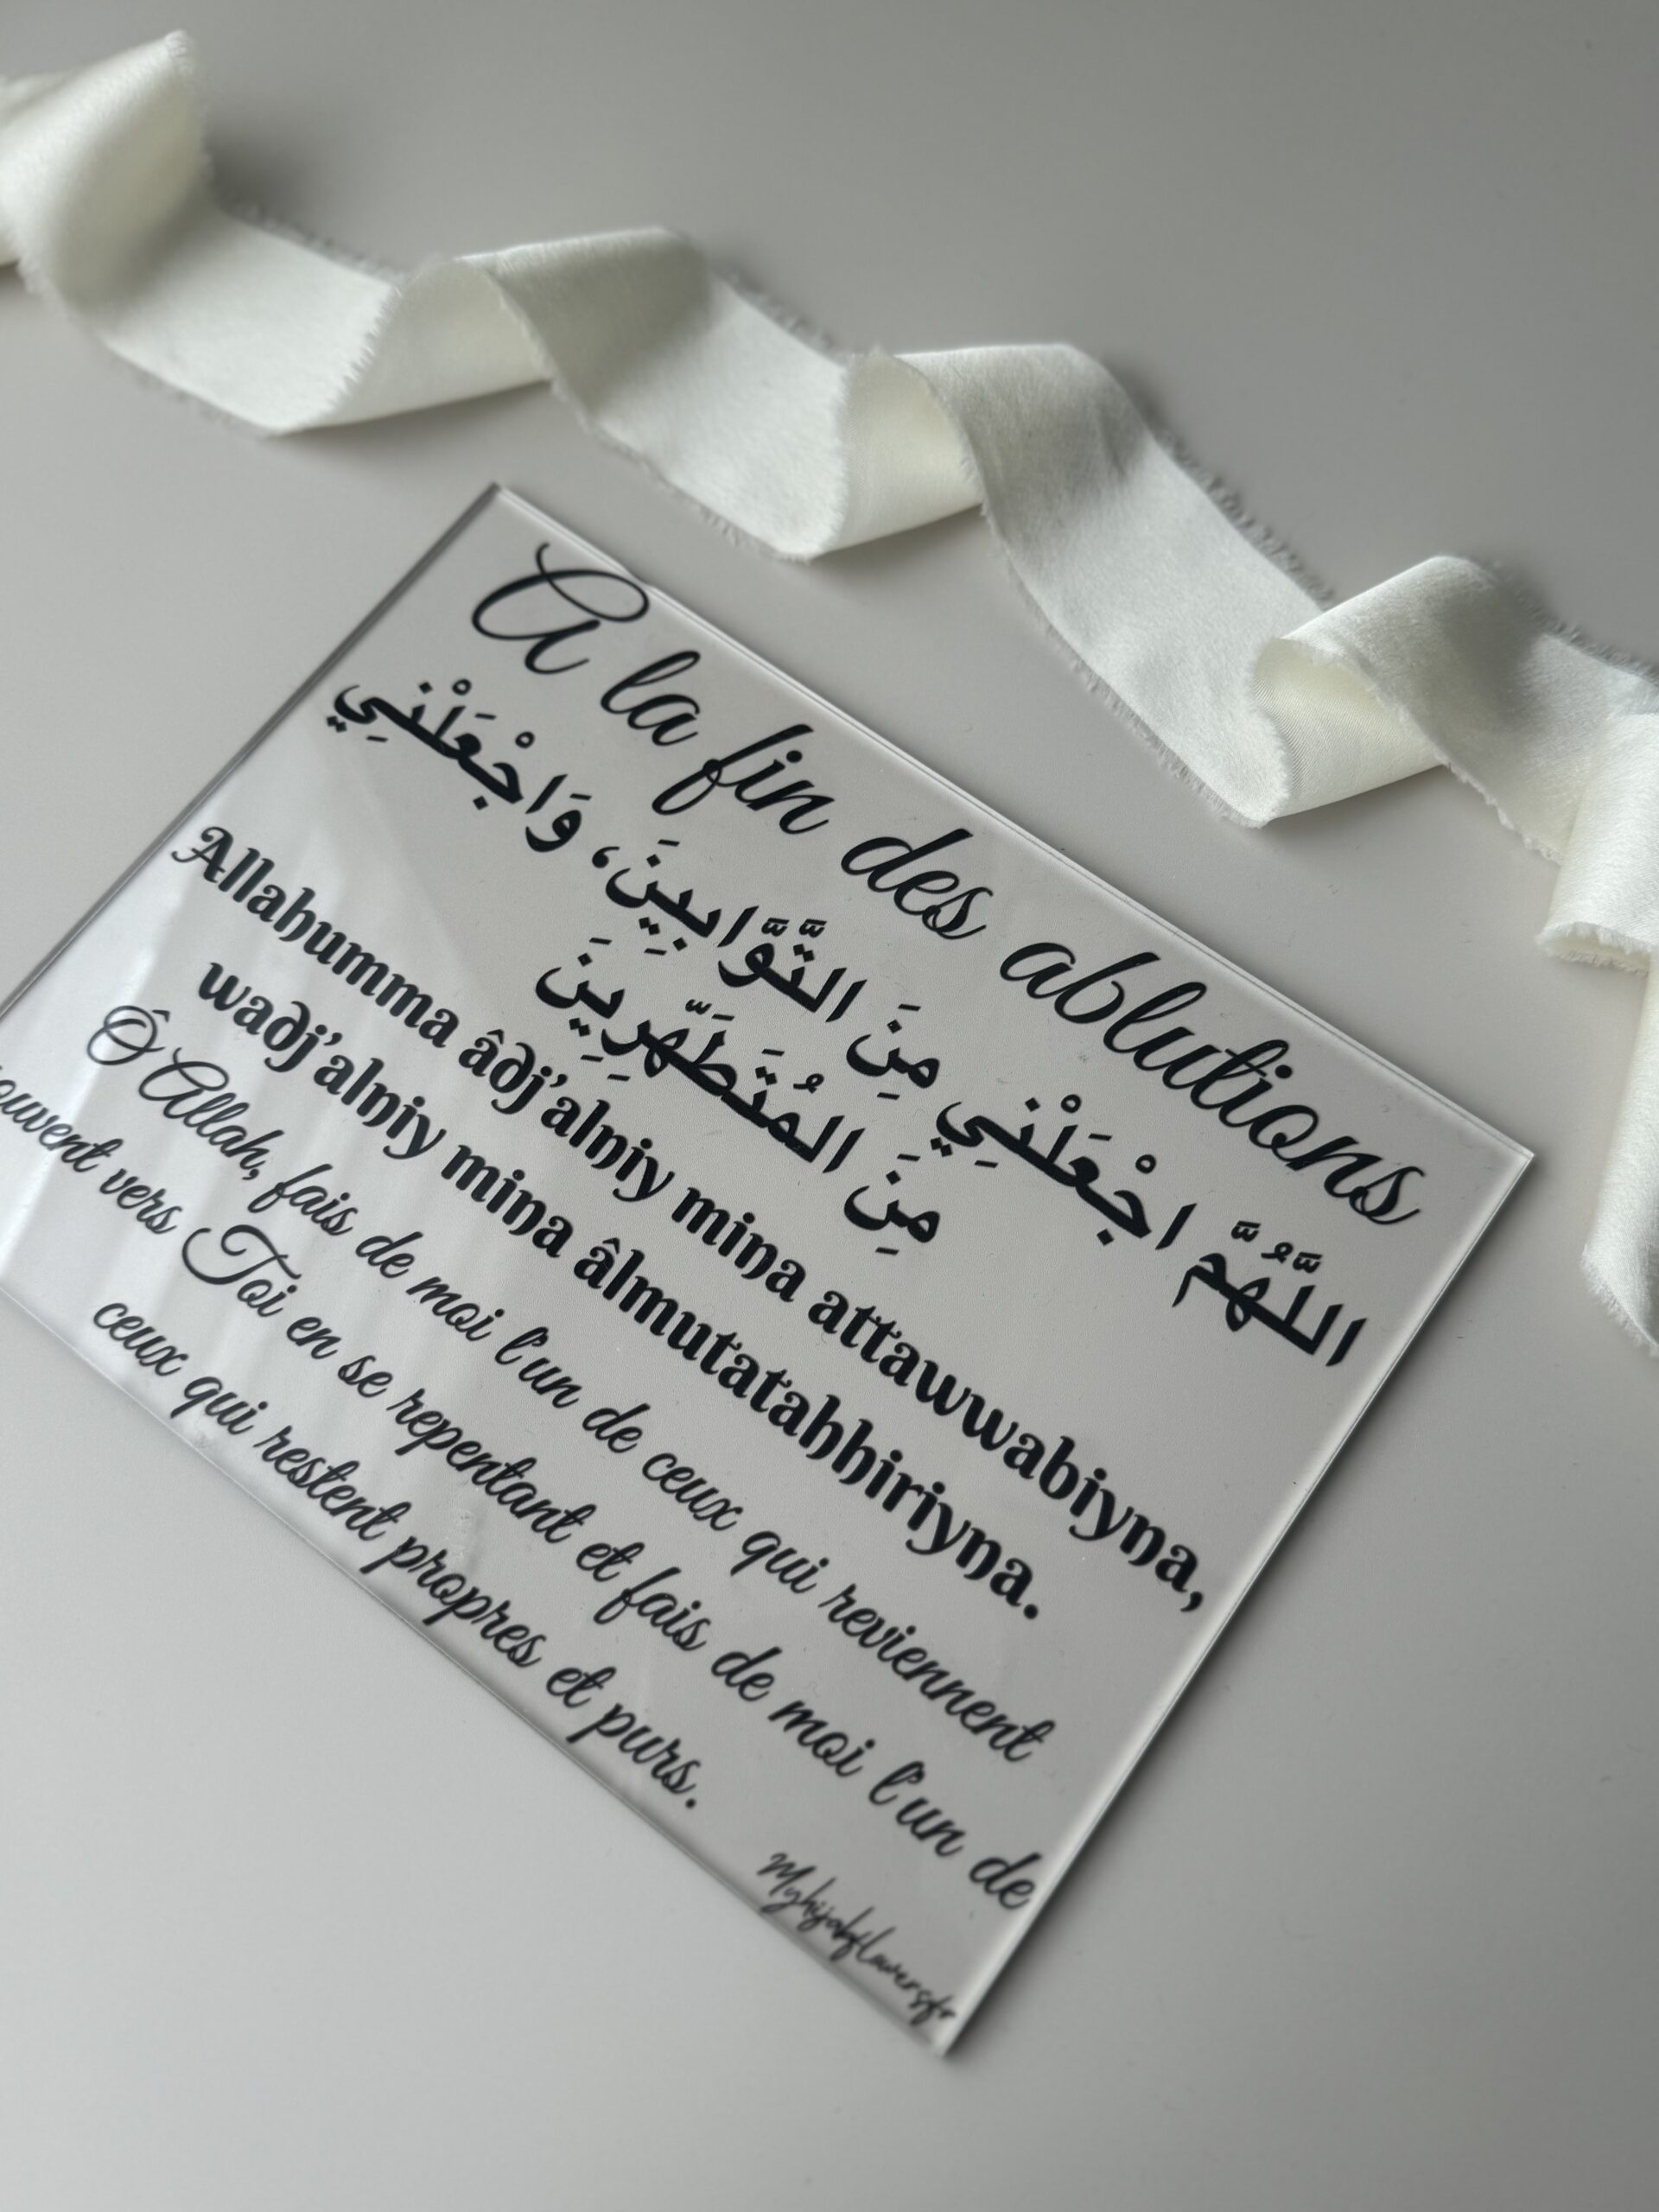 A la fin des ablutions
اللَّهُمَّ اجْعَلْنِي مِنَ التَّوَّابِينَ، وَاجْعَلْنِي
مِنَ المُتَطَهِّرِينَ
Allahumma âdj'alniy mina attawwabiyna,
wadj'alniy mina âlmutatahhiriyna.
Ô Allah, fais de moi l'un de ceux qui reviennent
souvent vers Toi en se repentant et fais de moi l'un de
ceux qui restent propres et purs.
Myhijabflowersfr